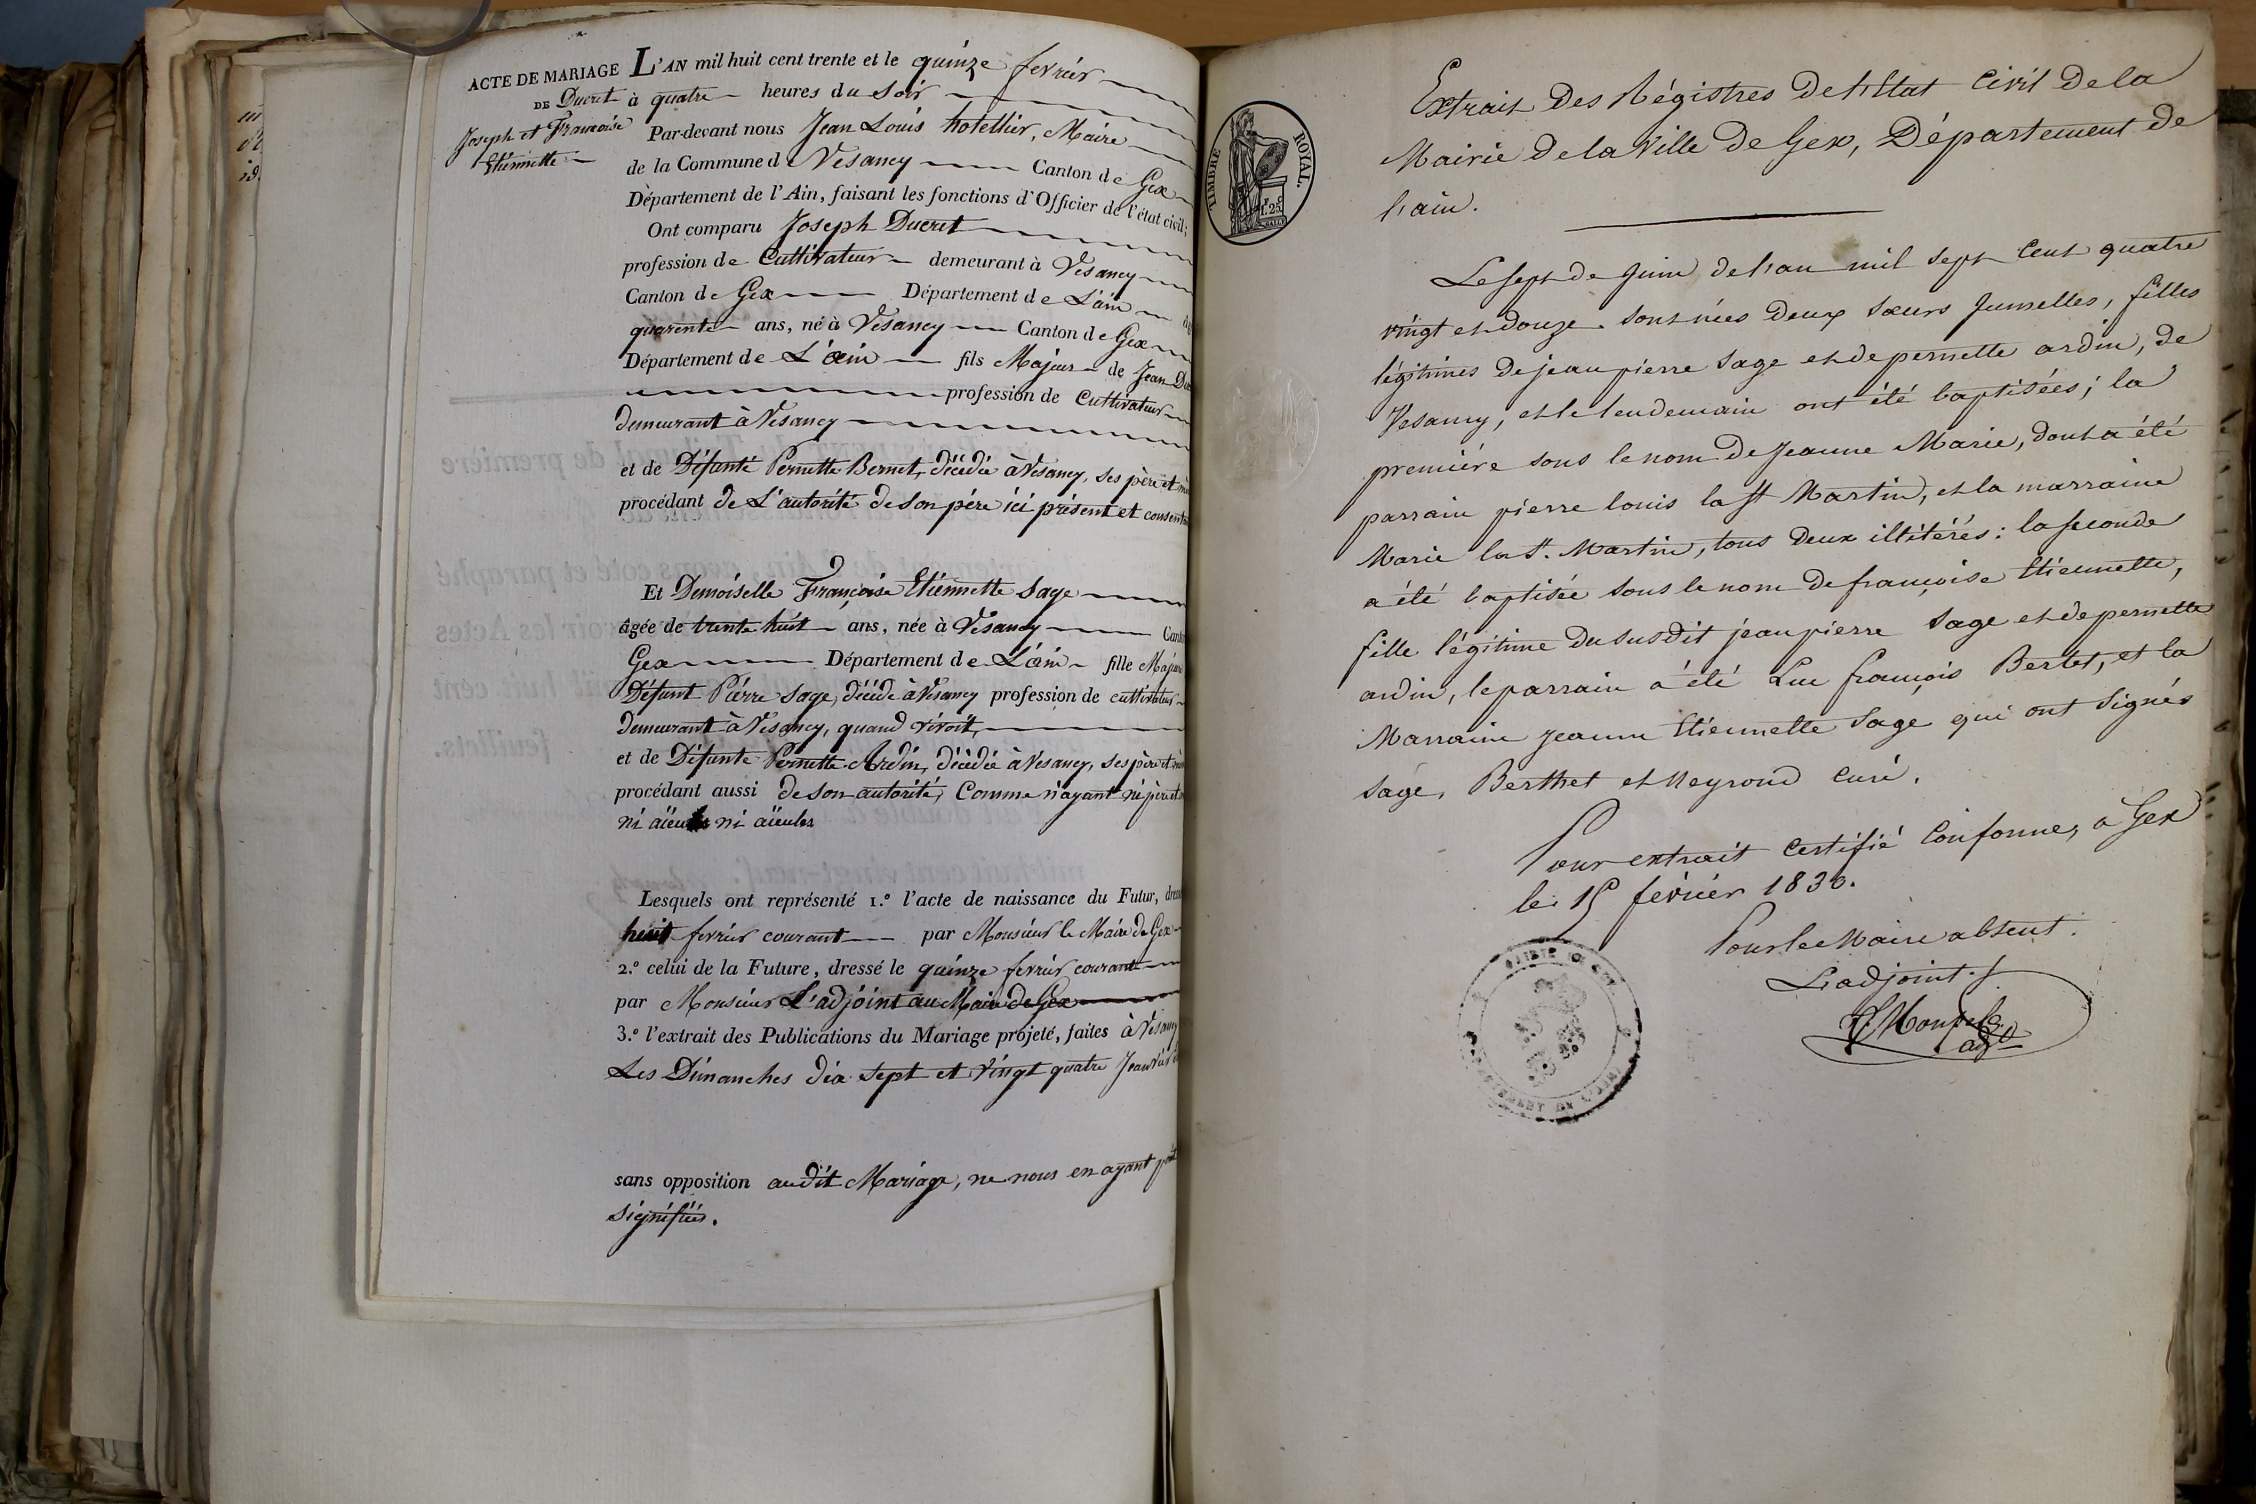 ACTE DE MARIAGE
DE Ducret
Joseph et Francoise
Etiennette
L'AN mil huit cent trente et le quinze fevrier
à quatre heures du soir
Par-devant nous Jean Louis hotellier, Maire
de la Commune de Vesancy Canton de Gex
Département de l'Ain, faisant les fonctions d'Officier de l'état civil;
Ont comparu Joseph Ducret
profession de Cultivateur demeurant à Vesancy
Canton de Gex Département de L'ain
quarente ans, né à Vesancy Canton de Gex
Département de L'ain fils Majeur de Jean
profession de Cultivateur
demeurant à Vesancy
et de Défunte Pernette Bernet, décédée à Vesancy, ses père et
procédant de L'autorité de son père ici présent et
Et Demoiselle Françoise Etiennette Sage
âgée de trente huit ans, née à Vesancy
Gex Département de L'ain fille
Défunt Pierre Sage, décédé à Vesancy profession de cultivateur
demeurant à Vesancy, quand vivoit,
et de Défunte Pernette Ardin, décédée à Vesancy, ses père et
procédant aussi de son autorité, Comme n'ayant ni père
ni aïeuls ni aïeules
Lesquels ont représenté 1.º l'acte de naissance du Futur,
huit fevrier courant par Monsieur le Maire de Gex
2.º celui de la Future, dressé le quinze fevrier courant
par Monsieur L'adjoint au Maire de Gex
3.º l'extrait des Publications du Mariage projeté, faites à Vesancy
Les Dimanches dix sept et vingt quatre Janvier
sans opposition audit Mariage, ne nous en ayant
signifiées.
TIMBRE ROYAL.
1.25
Extrait Des Régistres De l'Etat Civil De la
Mairie de la Ville De Gex, Département De
l'ain.
Le sept de Juin de l'an mil sept Cent quatre
vingt et douze sont nées Deux sœurs Jumelles, filles
légitimes De jean pierre Sage et de pernette ardin, de
Vesancy, et le lendemain ont été baptisées; la
première sous le nom de Jeanne Marie, dont a été
parrain pierre louis la St Martin, et la marraine
Marie la St. Martin, tous Deux illitérés: la seconde
a été baptisée sous le nom De françoise Etiennette,
fille légitime Du susdit jean pierre Sage et de pernette
ardin, le parrain a été Luc françois Bertet, et la
Marraine jeanne Etiennette Sage qui ont Signés
Sage, Berthet et Meyroud Curé.
Pour extrait Certifié Conforme, a Gex
le 15 février 1830.
Pour le Maire absent.
L'adjoint
adjt